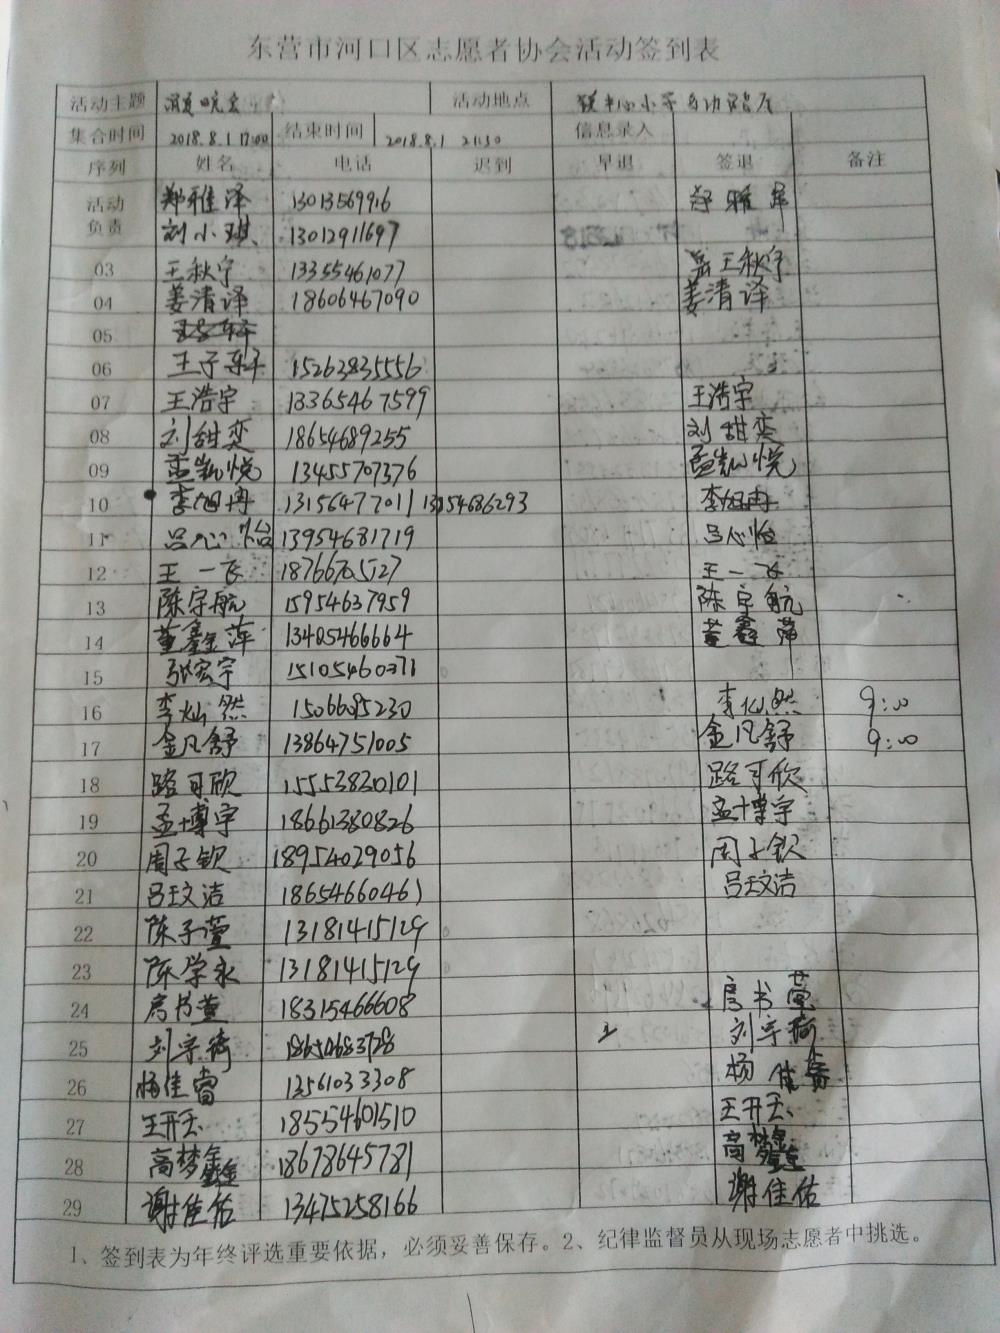 东营市河口区志愿者协会活动签到表
活动主题 消夏晚会 活动地点
集合时间 2018.8.1 17:00 结束时间 2018.8.1 21:30 信息录入
序列 姓名 电话 迟到 早退 签退 备注
活动负责 郑雅泽 13013569916 郑雅泽
刘小琪 13012911697
03 王秋宇 13355461077 王秋宇
04 姜清译 18606467090 姜清译
05
06 王子轩 15263835556
07 王浩宇 18365467599 王浩宇
08 刘甜奕 18654689255 刘甜奕
09 孟凯悦 13455707376 孟凯悦
10 李旭冉 13156477011 13154686293 李旭冉
11 吕心怡 13954681719 吕心怡
12 王一飞 18766705127 王一飞
13 陈宇航 15954637959 陈宇航
14 董鑫萍 13405466664 董鑫萍
15 张宏宇 15105460371
16 李灿然 1506695230 李灿然 9:00
17 金凡舒 13864751005 金凡舒 9:00
18 路可欣 15553830101 路可欣
19 孟博宇 18661380826 孟博宇
20 周子钦 18954029056 周子钦
21 吕玟洁 18654660461 吕玟洁
22 陈子萱 13181415129
23 陈学永 13181415129
24 房书萱 18315466608 房书萱
25 刘宇琦 18650683728 刘宇琦
26 杨佳睿 13561033308 杨佳睿
27 王开玉 18554601510 王开玉
28 高梦鑫 18678645781 高梦鑫
29 谢佳佑 13475258166 谢佳佑
1、签到表为年终评选重要依据，必须妥善保存。2、纪律监督员从现场志愿者中挑选。